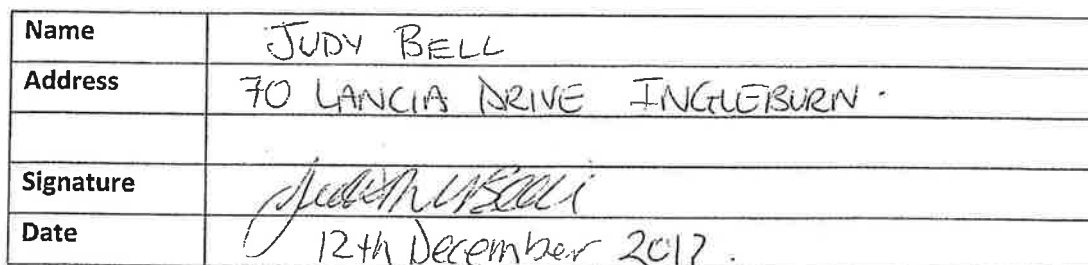 Name JUDY BELL
Address 70 LANCIA DRIVE INGLEBURN.
Signature
Date 12th December 2017.